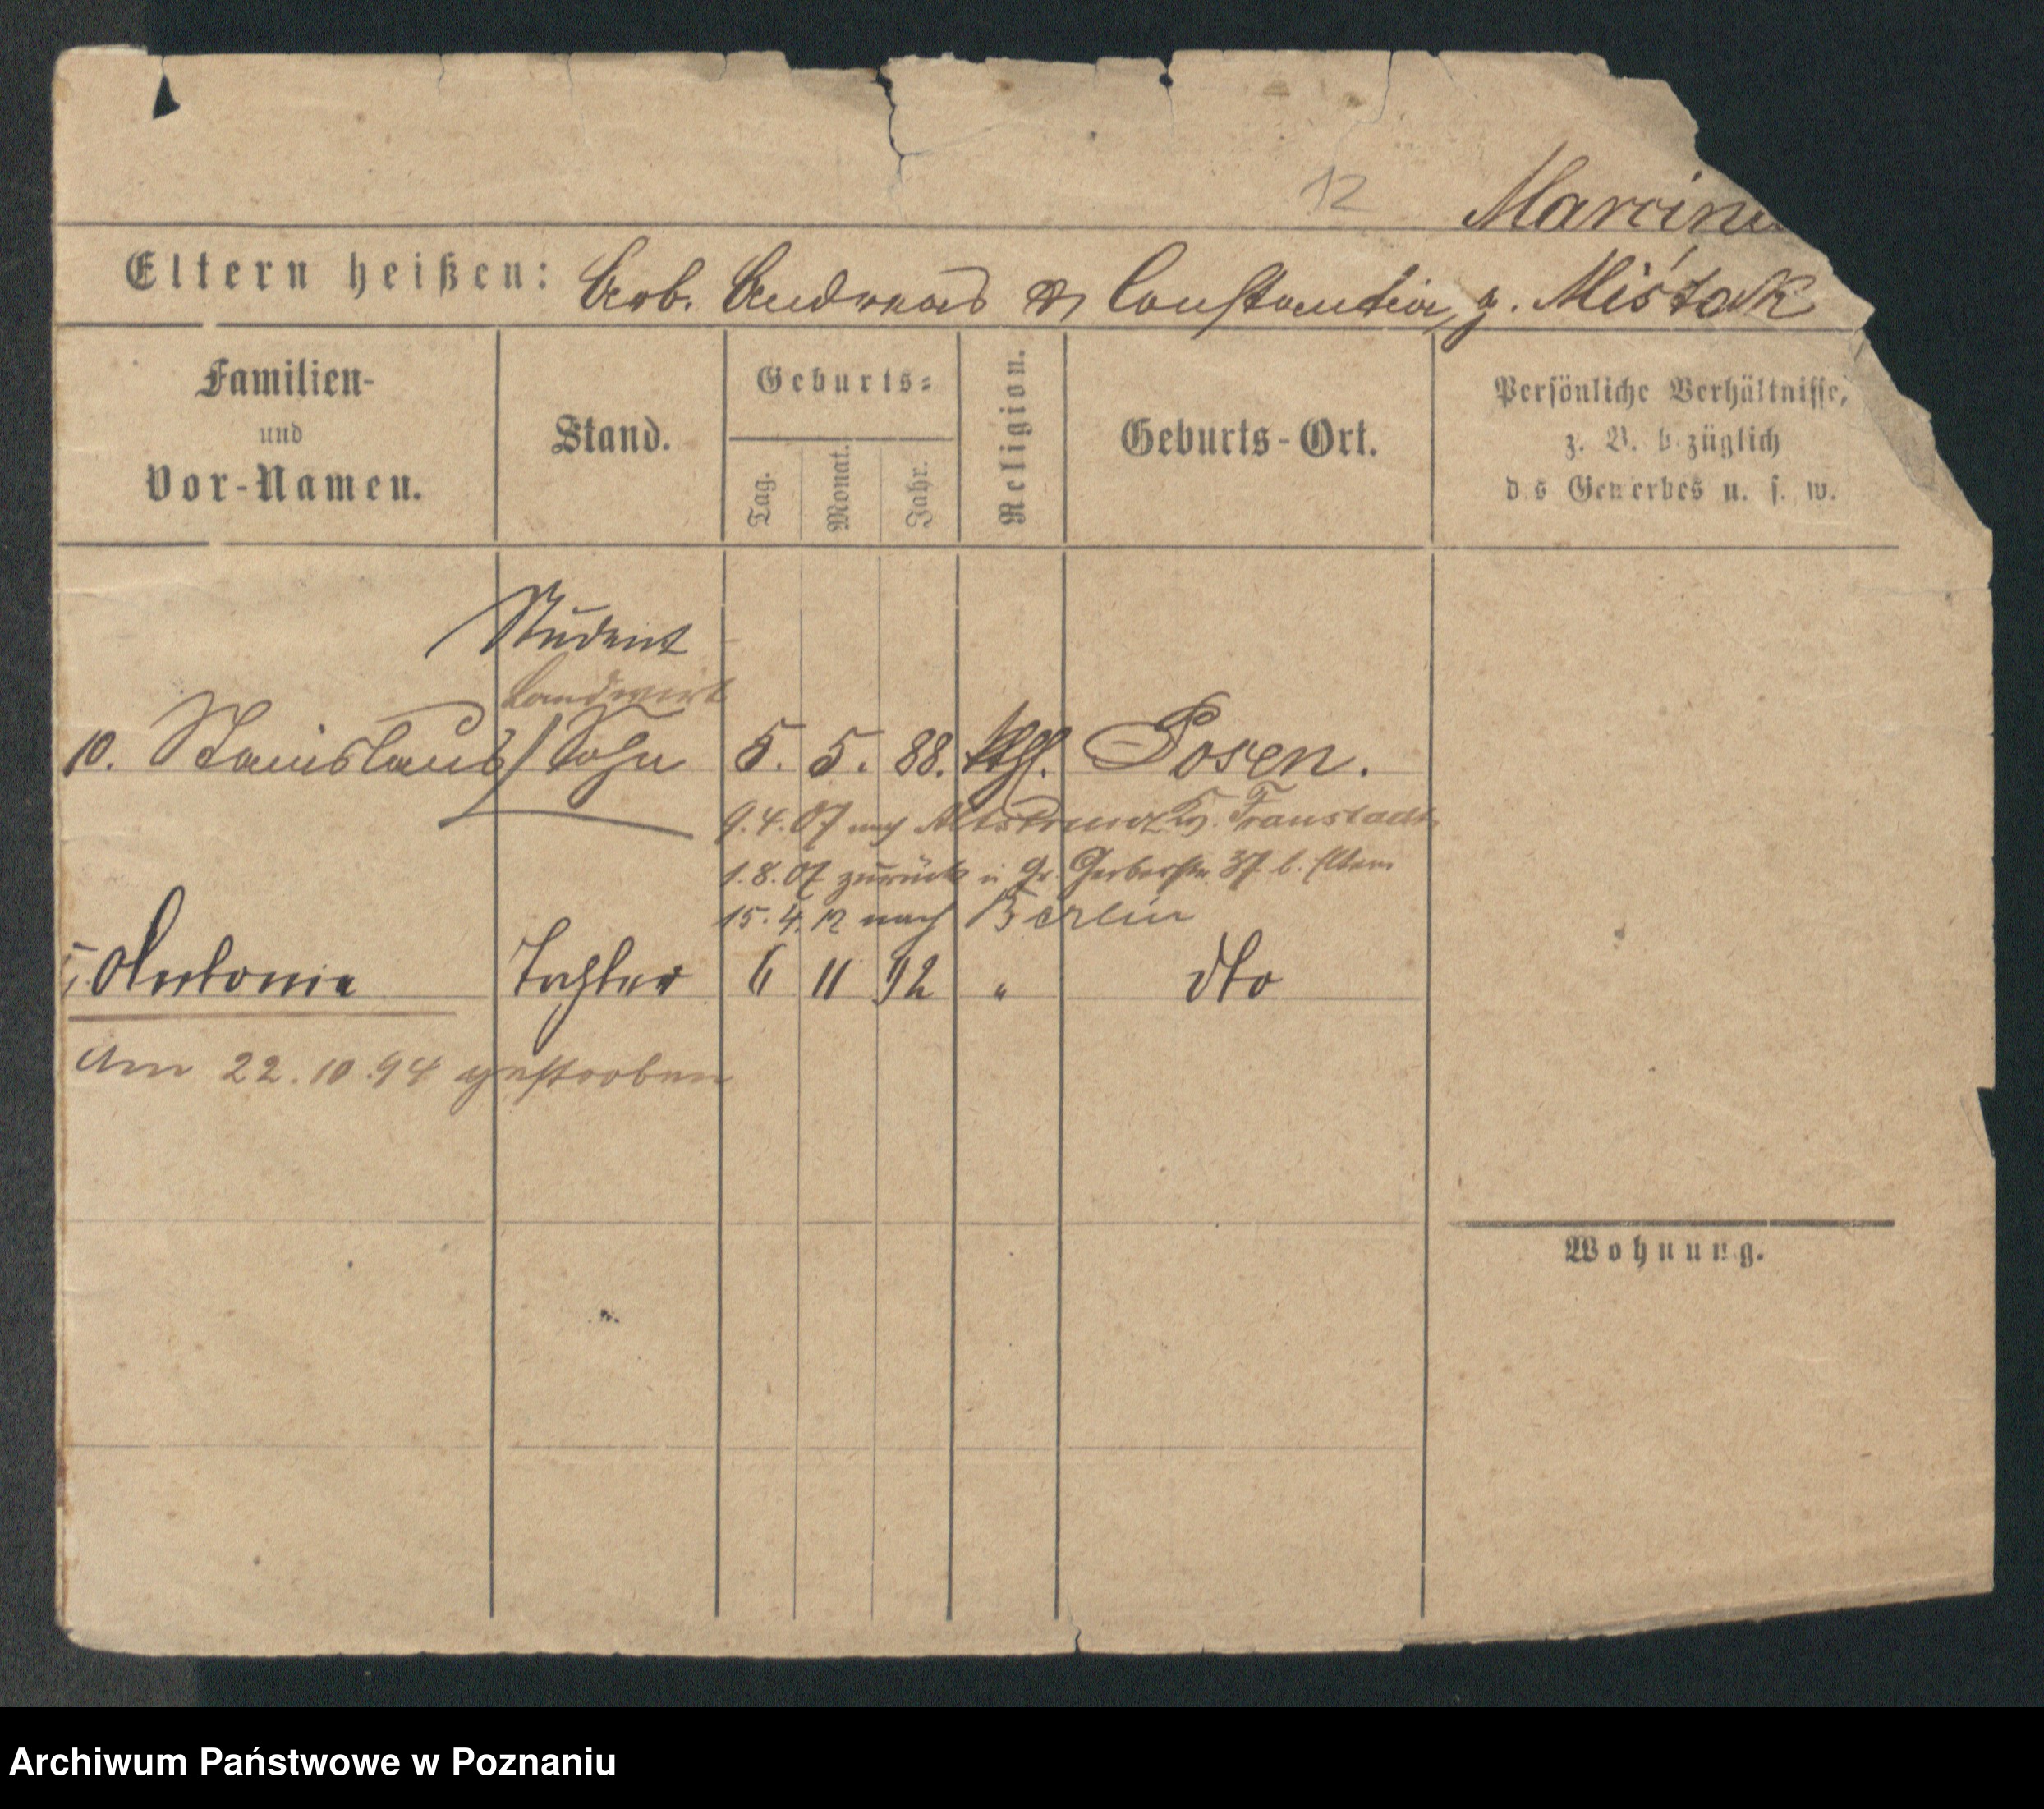 12
Marcin
Eltern heißen: Arb. Andreas & Constantia, g. Miśtak
Familien- und Vor-Namen.
Stand.
Geburts-
Tag.
Monat.
Jahr.
Religion.
Geburts-Ort.
Persönliche Verhältnisse,
z. B. bezüglich
des Gewerbes u. s. w.
Student
Landwirt
10. Stanislaus / Sohn 5. 5. 88. kth. Posen.
9.4.07 nach Kr. Fraustadt
1.8.07 zurück i Gr. Gerberstr. 37 b. Eltern
15.4.12 nach Berlin
Antonie Tochter 6 11 92 " dto
Am 22.10.94 gestorben
Wohnung.
Archiwum Państwowe w Poznaniu